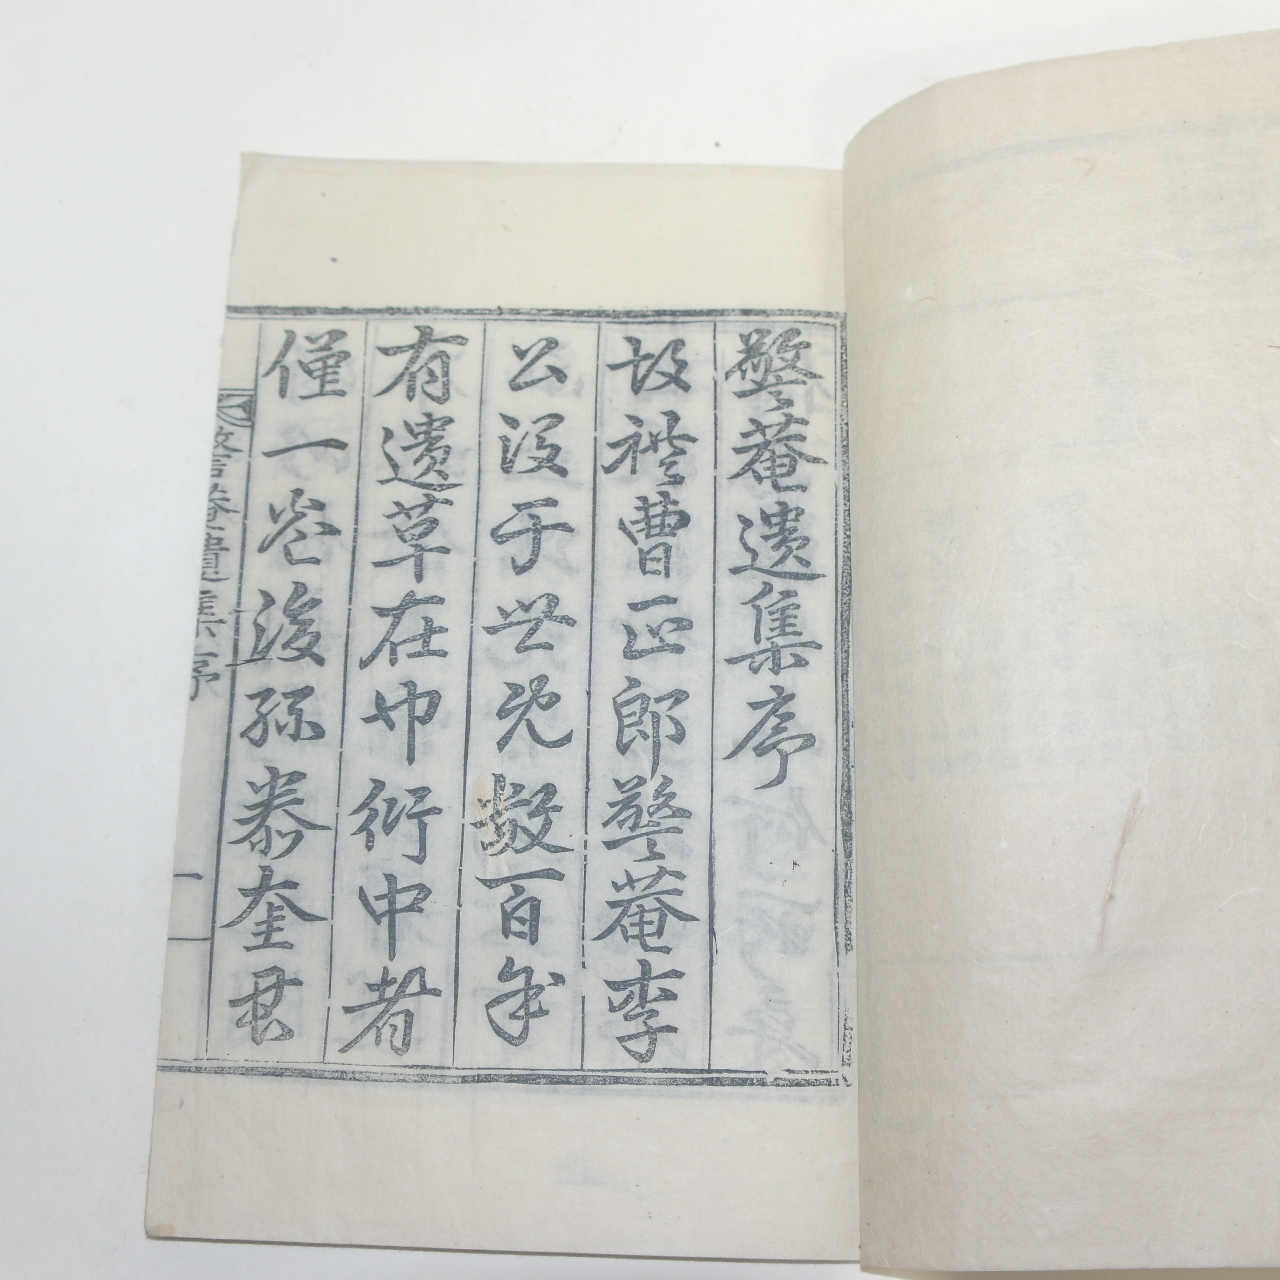 警菴遺集序
故禮曹正郎警菴李
公沒于世既數百年
有遺草在巾衍中者
僅一卷後孫泰奎君
警菴遺集序
一